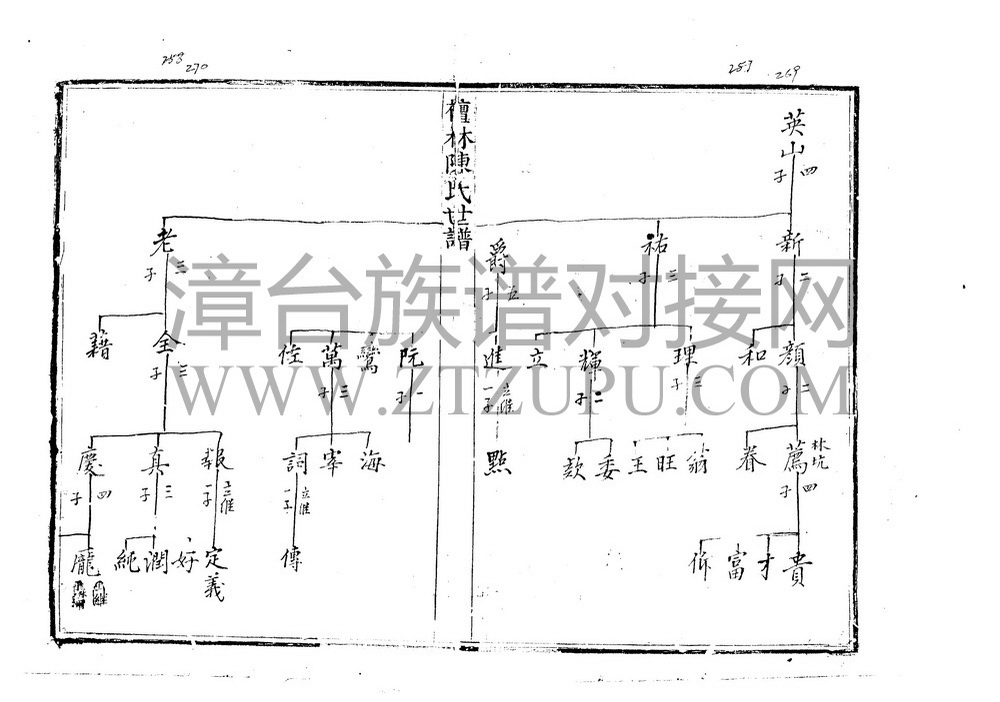 253
270
257
269
檀林陳氏世譜
英山
四子
新
二子
祐
三子
爵
五子
老
三子
顏
二子
和
理
三子
輝
二子
立
進
立継
一子
阮
一子
鸞
萬
三子
侄
全
三子
籍
薦
林坑
四子
眷
翁
旺
王
委
歎
點
海
宰
詞
立継
一子
報
立継
一子
真
三子
慶
四子
貴
才
富
仰
傳
定義
好
潤
純
龐
漳台族谱对接网
WWW.ZTZUPU.COM